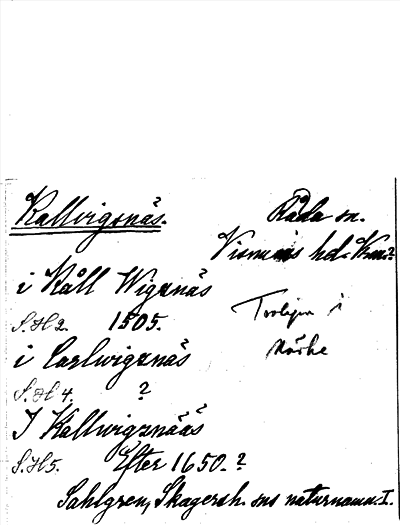 Kallvigsnäs. Råda sn.
Visnums hd. Krm?
i Kåll Wigznäs
S.H 2. 1505. Troligen i
i Carlwigznäs Närke
S.H 4. ?
I Kallwigznääs
S.H 5. Efter 1650.?
Sahlgren, Skagersh. sns naturnamn. I.